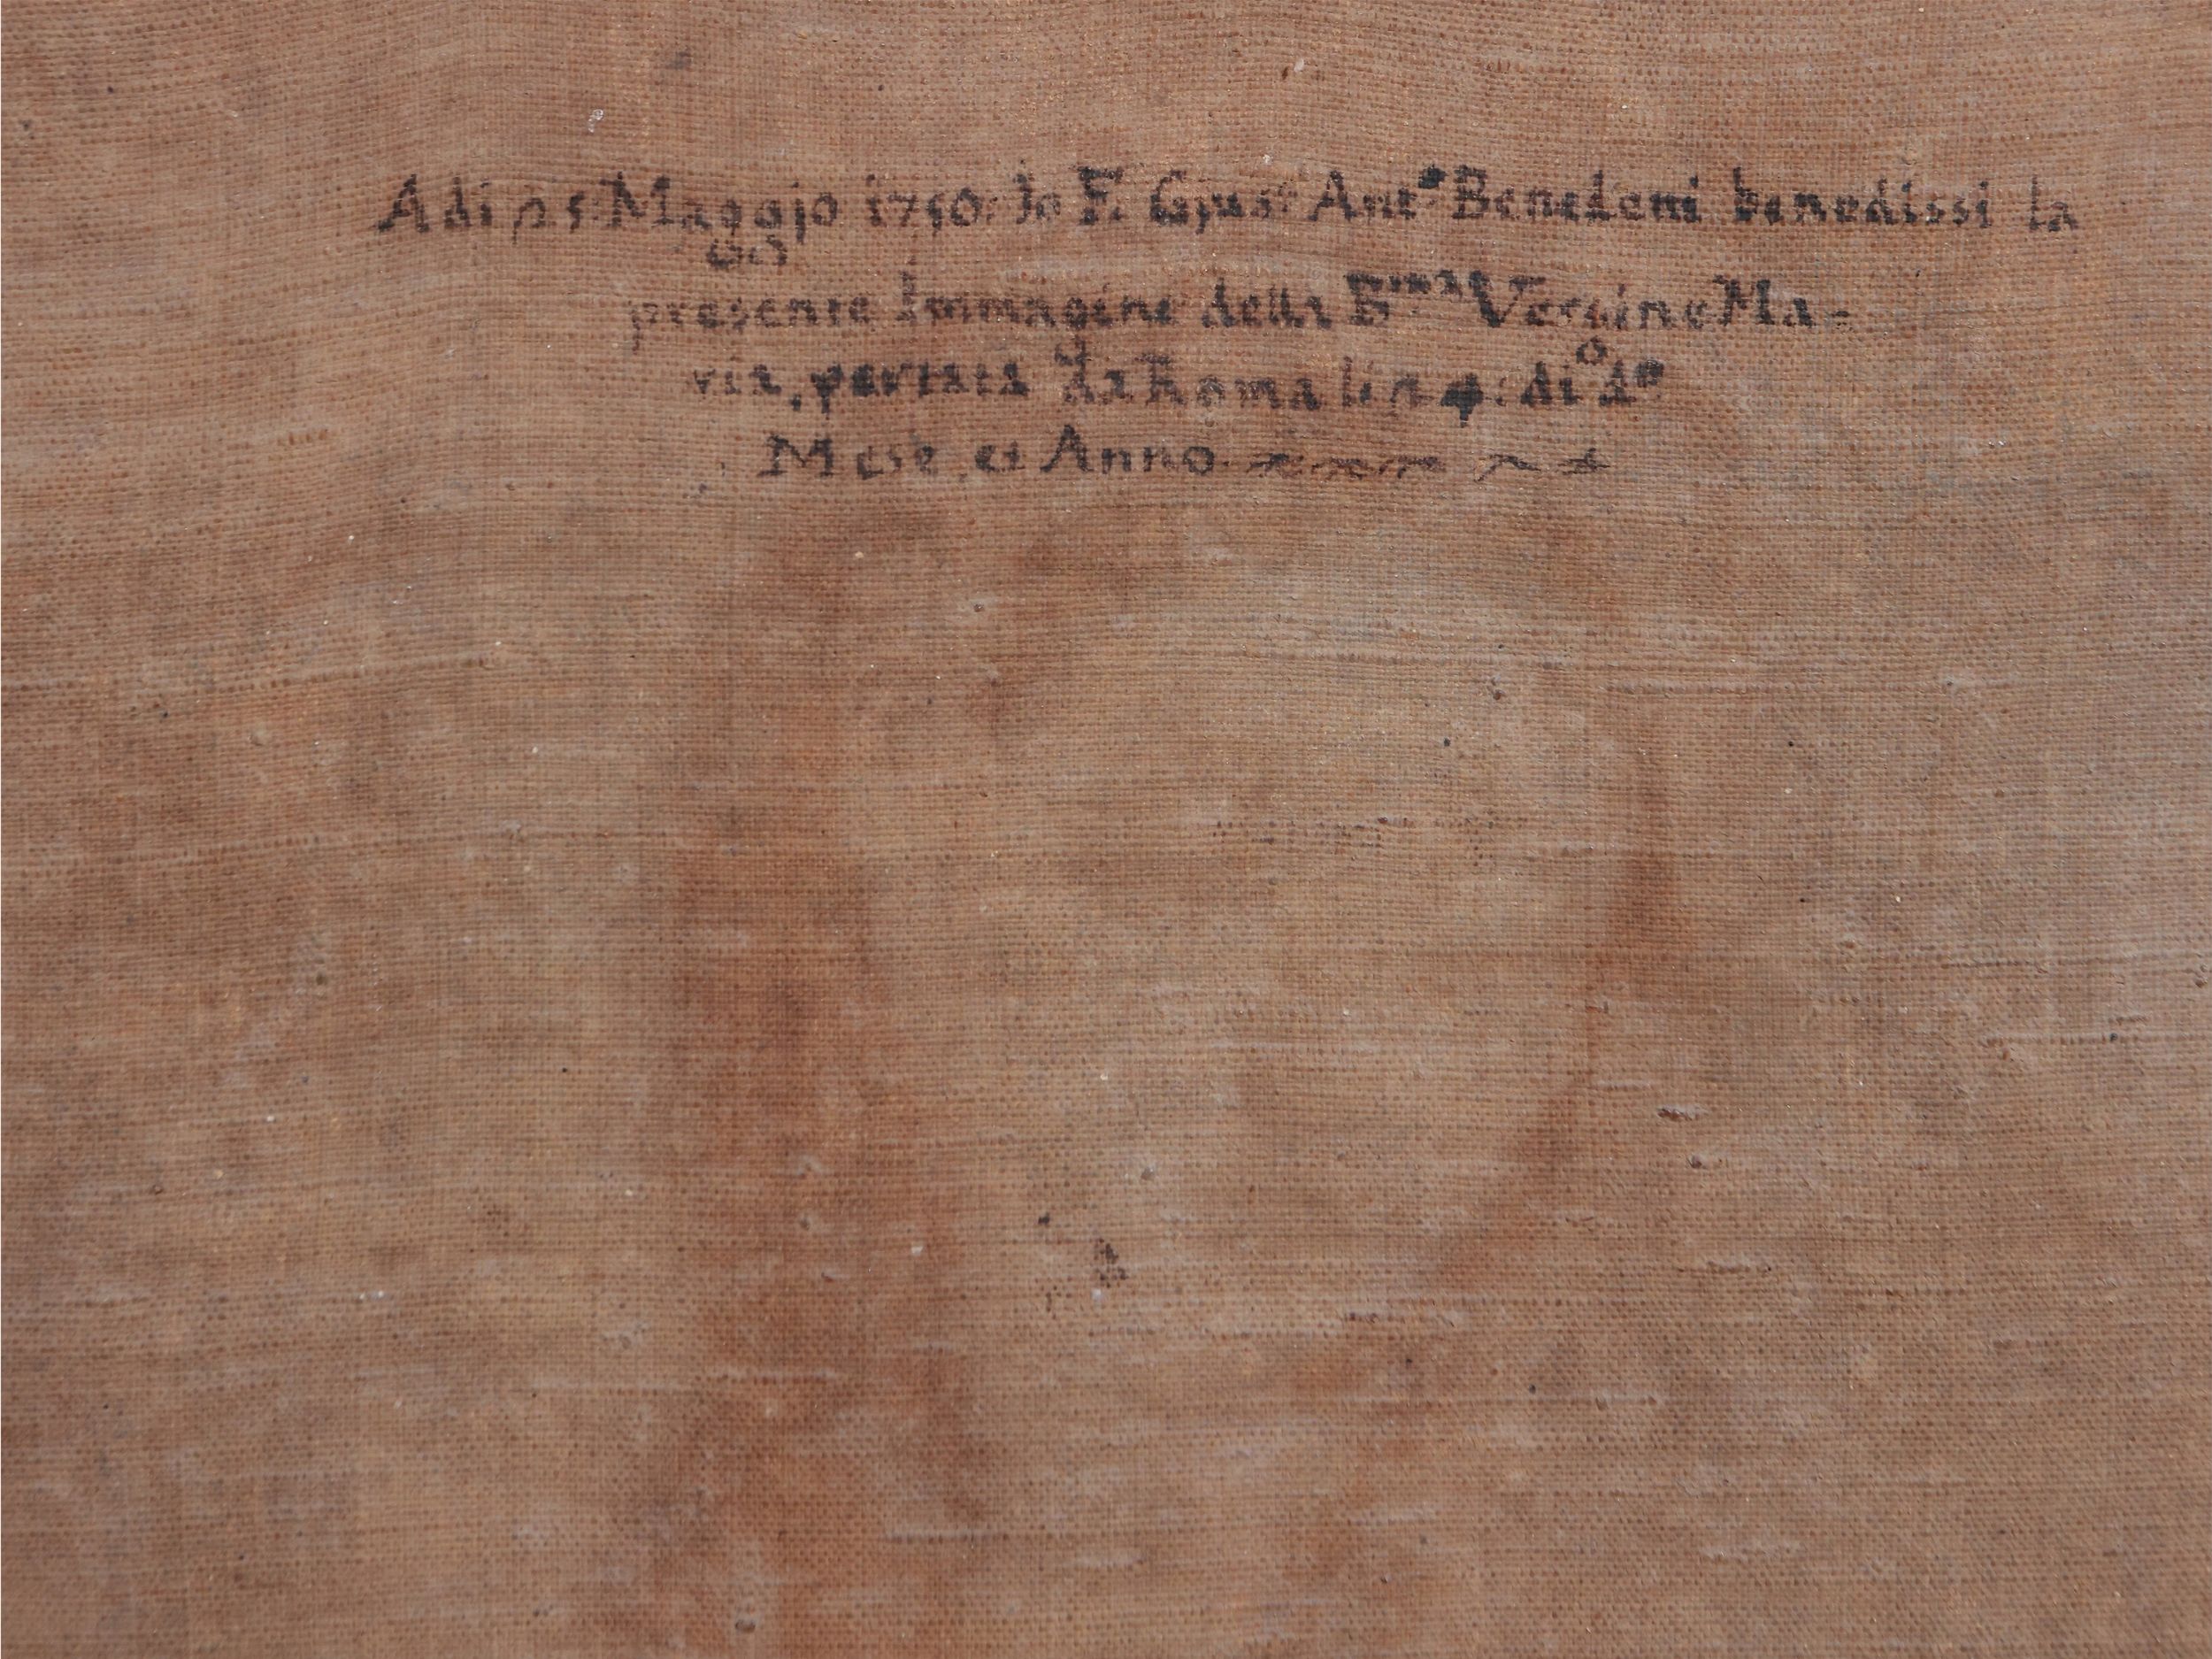 Adi 25 Maggio 1750. Io F. Gius: Ant.º Benedeni benedissi la
presente Immagine della B.ma Vergine Ma=
ria, portata da Roma li 4: di d.º
Mese et Anno